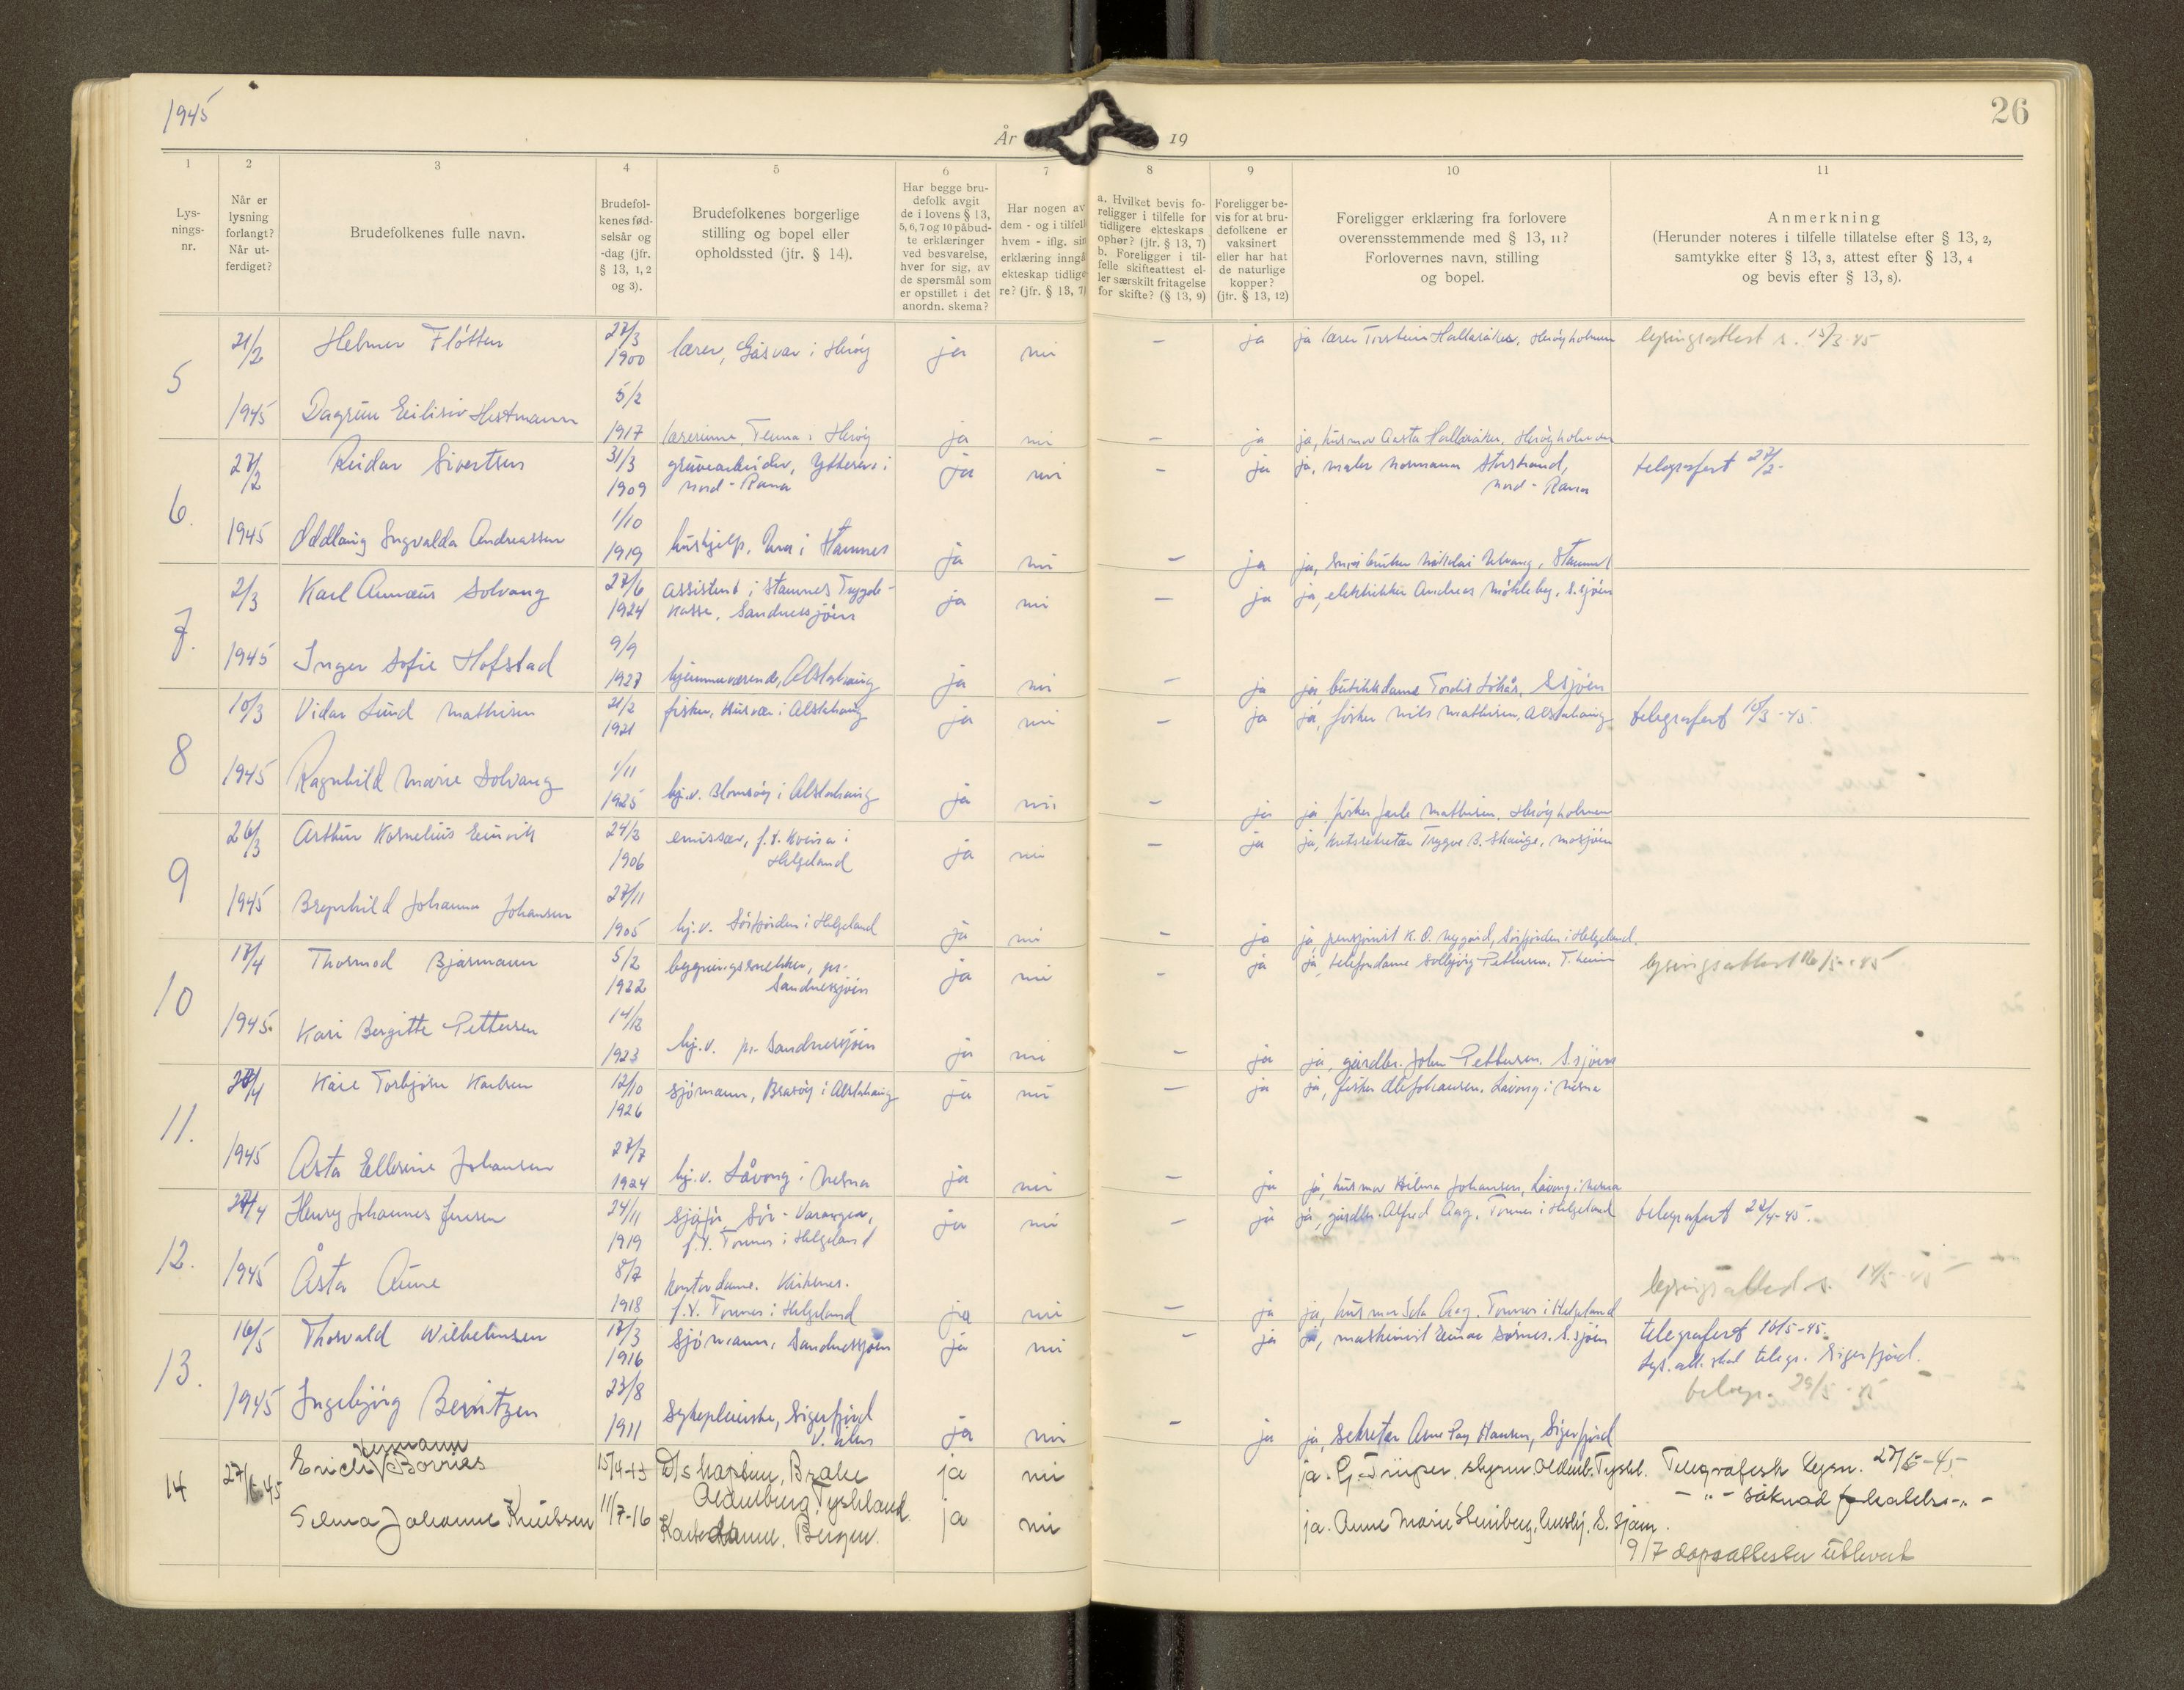 1945
26
År 19
1 2 3 4 5 6 7 8 9 10 11
Lys-
nings-
nr.
Når er
lysning
forlangt?
Når ut-
ferdiget?
Brudefolkenes fulle navn.
Brudefol-
kenes fød-
selsår og
-dag (jfr.
§ 13, 1, 2
og 3).
Brudefolkenes borgerlige
stilling og bopel eller
opholdssted (jfr. § 14).
Har begge bru-
defolk avgit
de i lovens § 13,
5, 6, 7 og 10 påbud-
te erklæringer
ved besvarelse,
hver for sig, av
de spørsmål som
er opstillet i det
anordn. skema?
Har nogen av
dem - og i tilfelle
hvem - iflg. sin
erklæring inngå
ekteskap tidlige
re? (jfr. § 13, 7)
a. Hvilket bevis fo-
religger i tilfelle for
tidligere ekteskaps
ophør? (jfr. § 13, 7)
b. Foreligger i til-
felle skifteattest el-
ler særskilt fritagelse
for skifte? (§ 13, 9)
Foreligger be-
vis for at bru-
defolkene er
vaksinert
eller har hat
de naturlige
kopper?
(jfr. § 13, 12)
Foreligger erklæring fra forlovere
overensstemmende med § 13, 11?
Forlovernes navn, stilling
og bopel.
Anmerkning
(Herunder noteres i tilfelle tillatelse efter § 13, 2,
samtykke efter § 13, 3, attest efter § 13, 4
og bevis efter § 13, 8).
5 21/2 Helmer Fløtten 27/3 1900 lærer, Gåsvær i Herøy ja nei - ja ja lærer Torstein Hallaråker, Herøyholmen lysingsattest s. 15/3-45
1945 Dagrun Eilisiv Hestmann 5/2 1917 lærerinne, Tenna i Herøy ja nei - ja ja, husmor Aasta Hallaråker, Herøyholmen
6. 27/2 Reidar Sivertsen 31/3 1909 gruvearbeider, Ytteren i
Nord-Rana ja nei - ja ja, maler Normann Storstrand,
Nord-Rana telegrafert 27/2-
1945 Oddlaug Ingvalda Andreassen 1/10 1919 hushjelp, i Stamnes ja nei - ja ja, Ulvang, Stamnes
7. 2/3 Karl Annæus Solvang 27/6 1924 assistent i Stamnes Trygde-
kasse, Sandnessjøen ja nei - ja ja, elektriker Andreas Møkleby, S.sjøen
1945 Inger Sofie Hofstad 9/9 1927 hjemmeværende, Alstahaug ja nei - ja ja, butikkdame Tordis S.sjøen
8 10/3 Vidar Lund Mathisen 21/2 1921 fisker, Husvær i Alstahaug ja nei - ja ja, fisker Nils Mathisen, Alstahaug telegrafert 10/3-45.
1945 Ragnhild Marie Solvang 1/11 1925 hj.v. Blomsøy i Alstahaug ja nei - ja ja fisker Jarle Mathisen, Herøyholmen
9 26/3 Arthur Kornelius Einvik 24/2 1906 emissær, f.t. Kvina i
Helgeland ja nei - ja ja, kretssekretær Trygve B. Skauge, Mosjøen
1945 Brynhild Johanna Johansen 27/11 1905 hj.v. Sørfjorden i Helgeland ja nei - ja ja, pensjonist K. O. Nygård, Sørfjorden i Helgeland.
10 17/4 Thormod Bjarmann 5/2 1922 bygningssnekker, pr.
Sandnessjøen ja nei - ja ja, telefondame Solbjørg Pettersen, T.heim lysingsattest 16/5-45
1945. Kari Bergitte Pettersen 14/12 1923 hj.v. pr. Sandnessjøen ja nei - ja ja, gårdbr. John Pettersen, S.sjøen
11. 27/4 Kåre Torbjørn Karlsen 12/10 1926 sjømann, Brasøy i Alstahaug ja nei - ja ja, fisker Ole Johansen, Låvong i Nesna
1945 Asta Ellerine Johansen 27/7 1924 hj.v. Låvong i Nesna ja nei - ja ja, husmor Hilma Johansen, Låvong i Nesna
12. 27/4 Henry Johannes Jensen 24/11 1919 sjåfør, Sør-Varanger,
f.t. Tonnes i Helgeland ja nei - ja ja, gårdbr. Alfred Aag, Tonnes i Helgeland telegrafert 27/4-45.
1945 Åsta Aune 8/7 1918 kontordame. Kirkenes.
f.t. Tonnes i Helgeland ja nei - ja ja, husmor Aag, Tonnes i Helgeland lysingsattest s. 14/5-45
13. 16/5 Thorvald Wilhelmsen 17/3 1916 sjømann, Sandnessjøen ja nei - ja ja, maskinist Einar Sørnes, S.sjøen telegrafert 16/5-45.
Lys.att. skal telegr. Sigerfjord.
telegr. 29/5-45
1945 Ingebjørg Berntzen 23/8 1911 sykepleierske, Sigerfjord
ja nei - ja ja, sekretær Arne Hansen, Sigerfjord
14 27/6 45 Erich Hermann Borries 15/4-13 D/s kaptein, Brake
Oldenburg, Tyskland. ja nei ja. G. Trüper. styrm. Oldenb. Tyskl. Telegrafisk lysn. 27/6-45
-"- søknad -"-
Selma Johanne Knudsen 11/7-16 Bergen. ja nei ja. Anne Marie Heiberg, S.sjøen.
9/7 dåpsattester utlevert